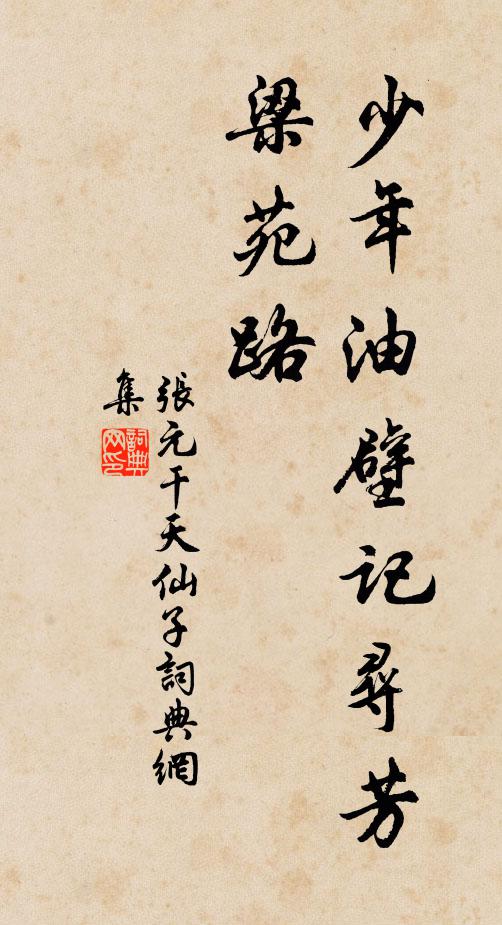 少年油壁記尋芳
梁苑路
張元干天仙子詞典網
集
詞典網印